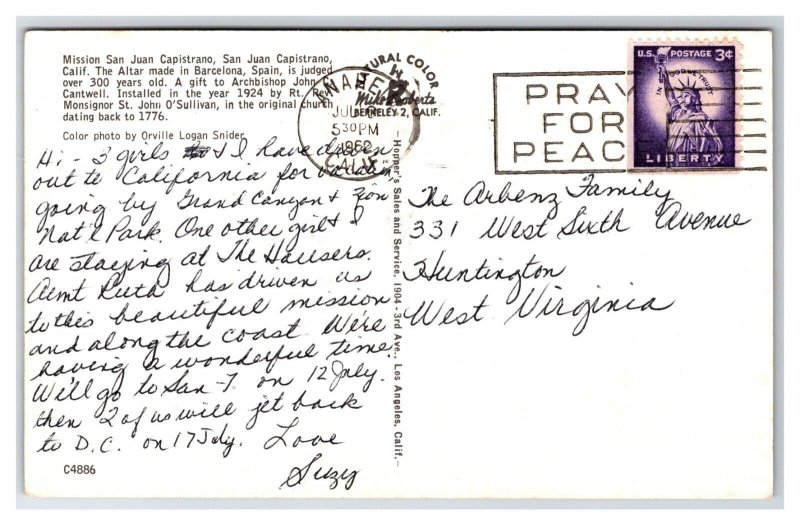 Mission San Juan Capistrano, San Juan Capistrano,
Calif. The Altar made in Barcelona, Spain, is judged
over 300 years old. A gift to Archbishop John J.
Cantwell. Installed in the year 1924 by Rt. Rev.
Monsignor St. John O'Sullivan, in the original church
dating back to 1776.
Color photo by Orville Logan Snider
Hi - 3 girls & I have driven
out to California for vacation,
going by Grand Canyon & Zion
Nat'l Park. One other girl & I
are staying at The Hausers.
Aunt Ruth has driven us
to this beautiful mission
and along the coast. We're
having a wonderful time.
We'll go to San F. on 12 July.
then 2 of us will jet back
to D.C. on 17 July. Love
Suzy
C4886
NATURAL COLOR
Mike Roberts
BERKELEY 2, CALIF.
JUL
530PM
1962
CALIF
Hopper's Sales and Service, 1904 - 3rd Ave., Los Angeles, Calif.
PRAY
FOR
PEACE
U.S. POSTAGE 3¢
IN GOD WE TRUST
LIBERTY
The Arbenz Family
331 West Sixth Avenue
Huntington
West Virginia